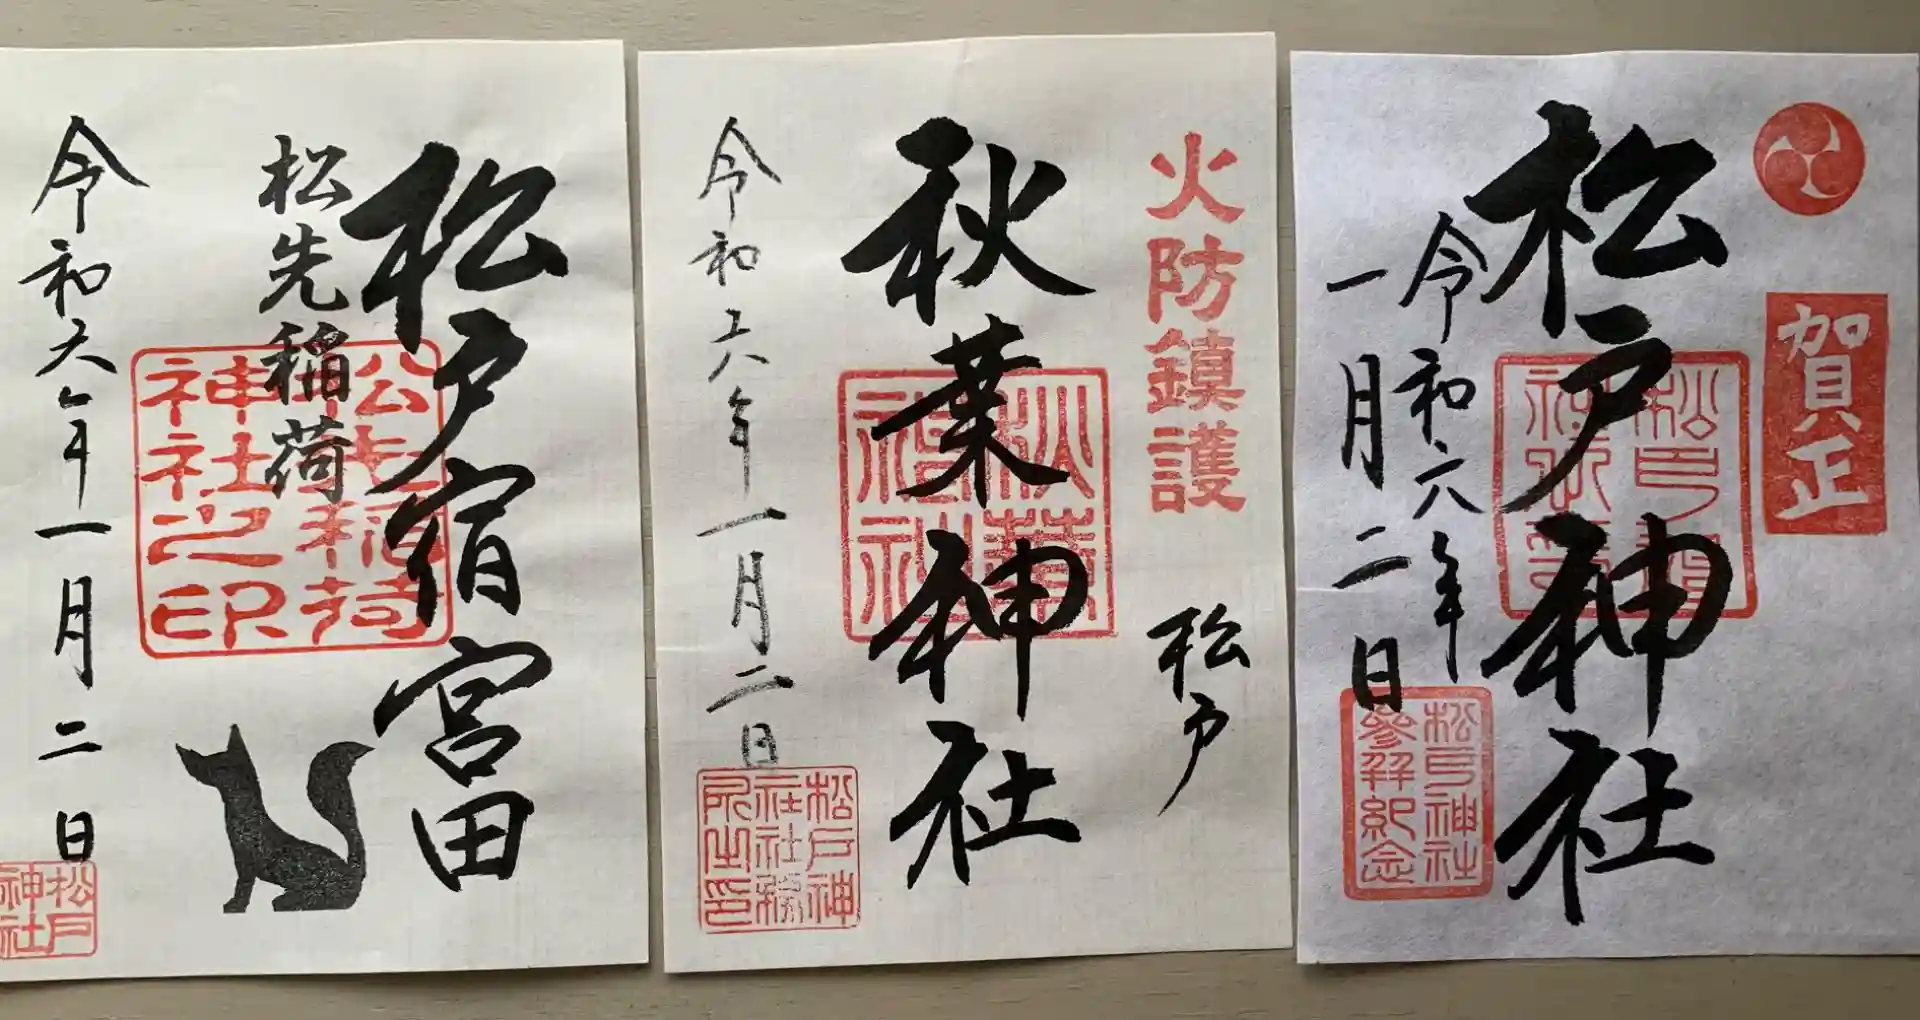 賀正
松戸神社
令和六年
一月二日
松戸神社
参拝紀念
火防鎮護
松戸
秋葉神社
秋葉
神社
令和六年一月二日
松戸神
社社務
所之印
松戸宿宮田
松先稲荷
神社之印
令和六年一月二日
松戸
神社